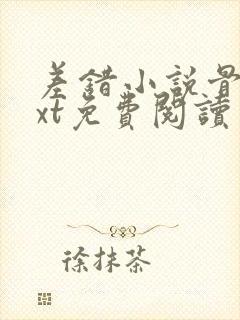 差錯小説骨
xt免費閱讀
徐抹茶